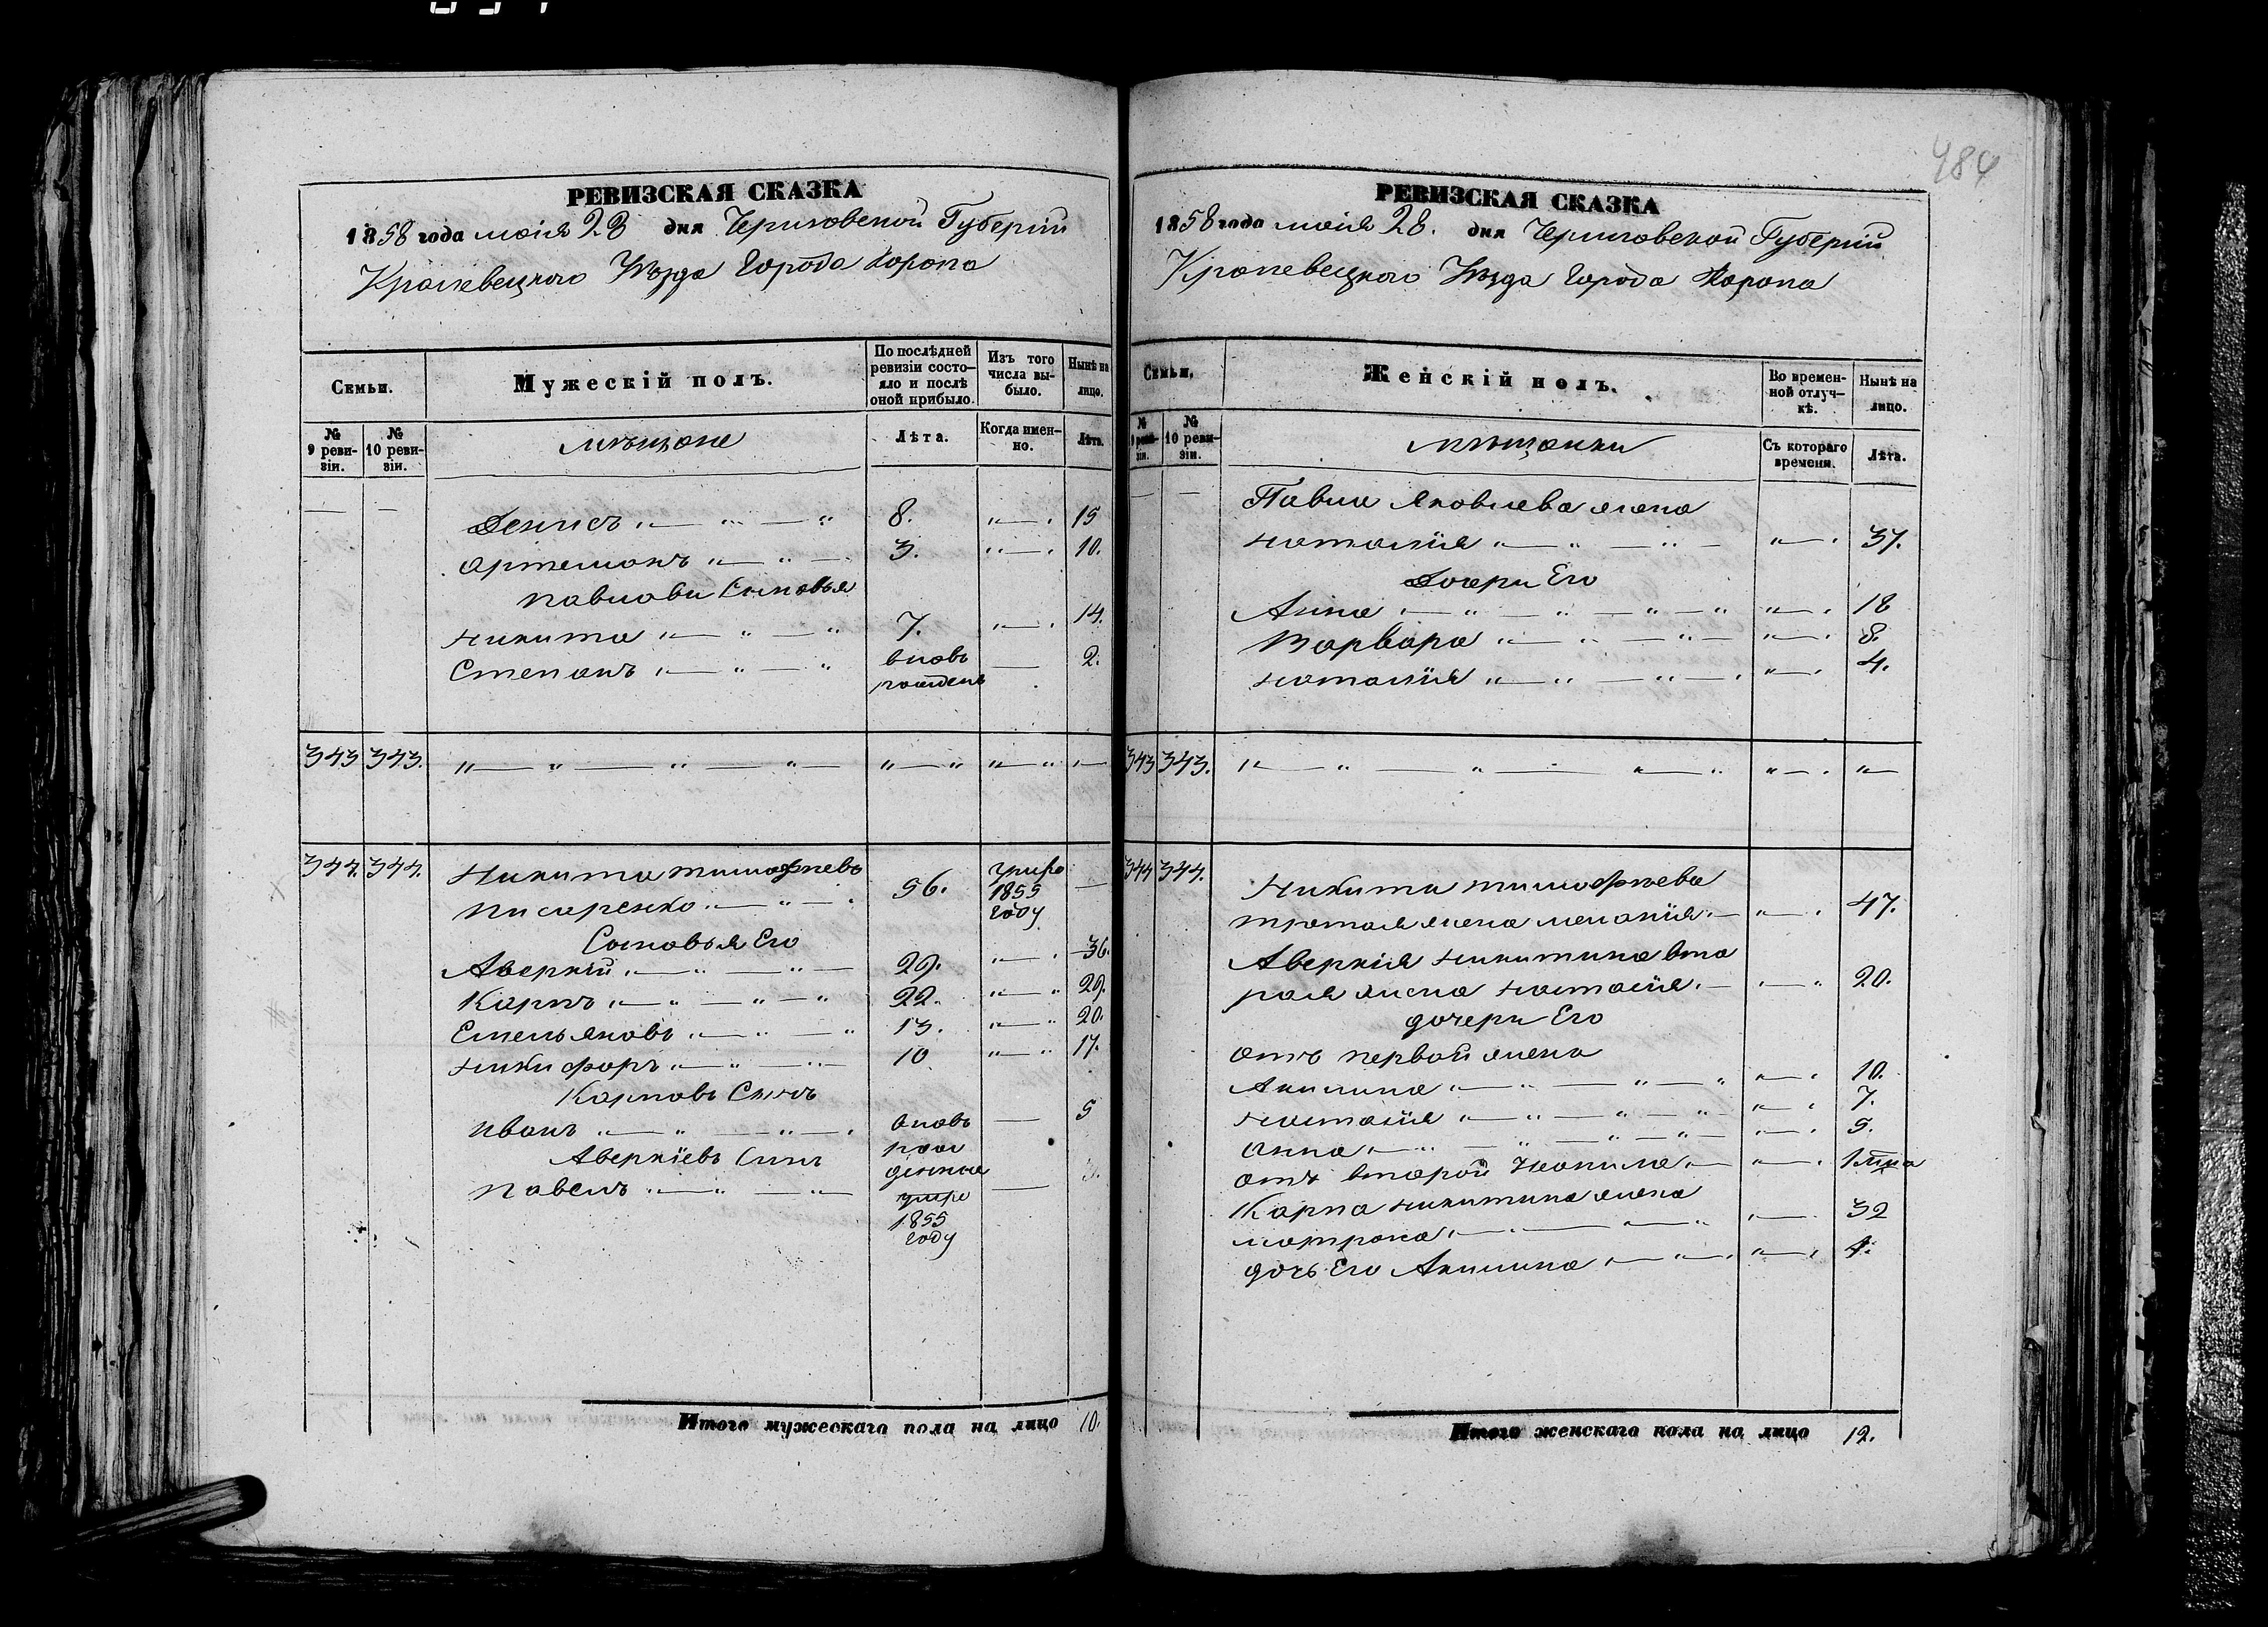 484
РЕВИЗСКАЯ СКАЗКА
1858 года маія 28 дня Черниговской Губерніи
Кролевецкого Уѣзда Города Коропа
Семьи.
Мужескій полъ.
По послѣдней ревизіи состояло и послѣ оной прибыло.
Изъ того числа выбыло.
Нынѣ на лицо.
№ 9 ревизіи.
№ 10 ревизіи.
мѣщане
Лѣта.
Когда именно.
Лѣта.
— — Денисъ „ — „ — „ 8. „ — „ 15
Артемонъ „ — „ — 3. „ — „ 10.
Павловы Сыновья
Никита „ — „ — „ 7. „ — „ 14.
Степанъ „ — „ — „ вновь рожденъ — 2.
343 343. „ — „ — „ — „ — „ — „ „ — „ „ —
344. 344. Никита тимофѣевъ
Писаренко „ — „ — „ 56. умре 1855 году —
Сыновья Его
Аверкій „ — „ — „ — 29. „ — „ 36.
Карпъ „ — „ — „ — „ 22. „ — „ 29.
Емельяновъ „ — „ — „ 13. „ — „ 20.
Никифоръ „ — „ — „ 10 „ — „ 17.
Карповъ Сынъ
Иванъ „ — „ — „ — „ вновь — 5
Аверкіевъ Сынъ рож
Павелъ „ — „ — „ денные — 3.
умре
1855
году
Итого мужескаго пола на лицо 10.
РЕВИЗСКАЯ СКАЗКА
1858 года маія 28. дня Черниговской Губерніи
Кролевецкого Уѣзда Города Коропа
Семьи.
Женскій полъ.
Во временной отлучкѣ.
Нынѣ на лицо.
№ 9 ревизіи.
№ 10 ревизіи.
мѣщанки
Съ котораго времени.
Лѣта.
— — Павла Яковлева жена
Наталія „ — „ — „ — „ — „ 37.
Дочери Его
Анна „ — „ — „ — „ — „ „ — „ 18
Варвара „ — „ — „ — „ — „ 8.
Наталія „ — „ — „ — „ „ — „ 4.
343 343. „ — „ — „ — „ — „ „ — „ „ —
344 344. Никиты тимофѣева
третая жена меланія „ — „ — „ 47.
Аверкія Никитина вто
рая жена Настасія „ — „ — „ 20.
дочери Его
отъ первой жены
Акилина „ — „ — „ — „ „ — „ 10.
Настасія „ — „ — „ — „ „ — „ 7.
Анна „ — „ — „ — „ — „ — „ — „ 5.
отъ второй „ — „ — „
Карпа Никитина жена
матрона „ — „ — „ — „ „ — 32
дочь Его Акилина „ — „ — „ „ — „ 4.
Итого женскаго пола на лицо 12.